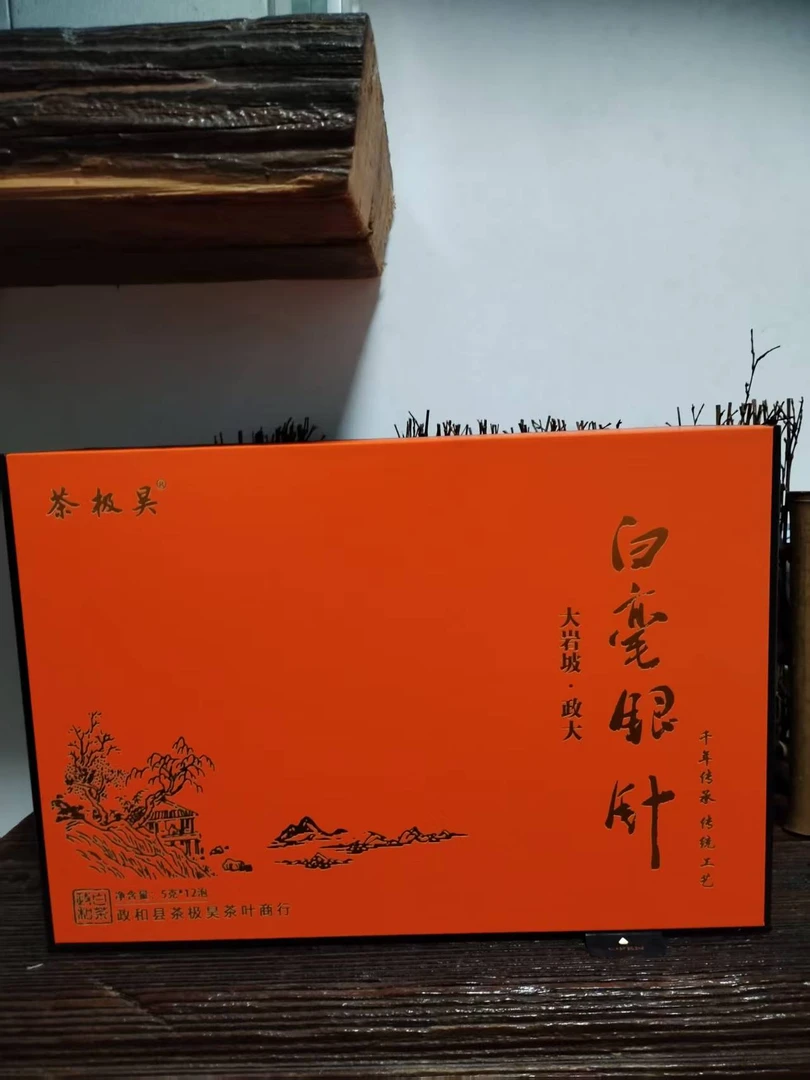 茶极昊®
白毫银针
大岩坡·政大
千年传承 传统工艺
政和白茶
净含量：5克*12泡
政和县茶极昊茶叶商行